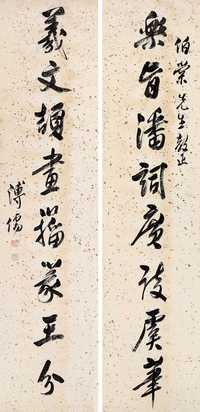 伯榮先生教正
樂旨潘詞虞華
羲文頡畫籀篆王分
溥儒